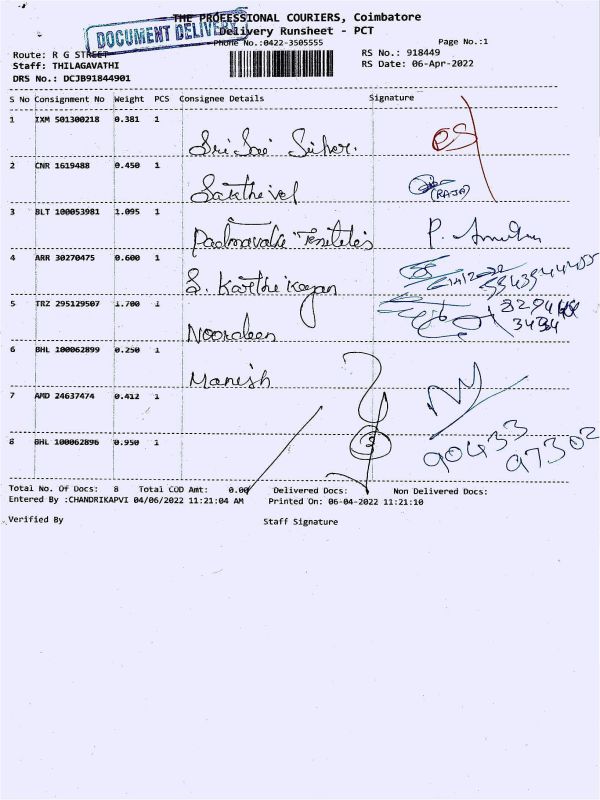 THE PROFESSIONAL COURIERS, Coimbatore
DOCUMENT DELIVERY
Delivery Runsheet - PCT
Phone No.:0422-3505555
Page No.:1
Route: R G STREET
RS No.: 918449
Staff: THILAGAVATHI
RS Date: 06-Apr-2022
DRS No.: DCJB91844901
S No Consignment No Weight PCS Consignee Details Signature
1 IXM 501300218 0.381 1
Sri Sai
2 CNR 1619488 0.450 1
Sakthivel (RAJA)
3 BLT 100053981 1.095 1
Padmavathi P.
4 ARR 30270475 0.600 1
S. Karthikeyan
5 TRZ 295129507 1.700 1
Noordeen
6 BHL 100062899 0.250 1
Manish
7 AMD 24637474 0.412 1
90433
8 BHL 100062896 0.950 1 3 97302
Total No. Of Docs: 8 Total COD Amt: 0.00 Delivered Docs: Non Delivered Docs:
Entered By :CHANDRIKAPVI 04/06/2022 11:21:04 AM Printed On: 06-04-2022 11:21:10
Verified By Staff Signature